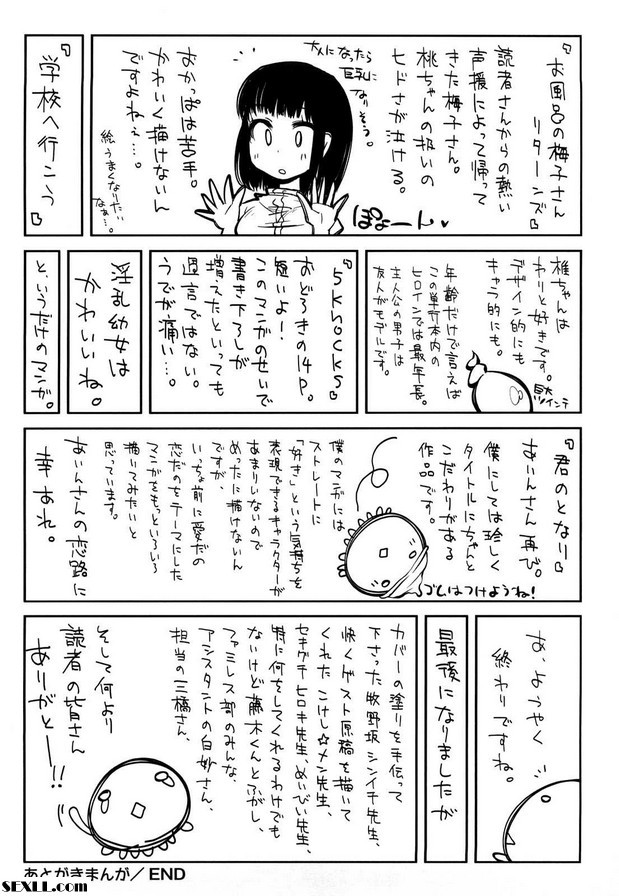 『お風呂の梅子さん
リターンズ』
読者さんからの熱い
声援によって帰って
きた梅子さん。
桃ちゃんの扱いの
ヒドさが泣ける。
大人になったら
巨乳に
なりそう。
ぽよーん
おかっぱは苦手。
かわいく描けないん
ですよねぇ…。
絵うまくなりたい
なぁ…。
『学校へ行こう』
椎ちゃんは
わりと好きです。
デザイン的にも
キャラ的にも。
黒ツインテ
年齢だけで言えば
この単行本内の
ヒロインでは最年長。
主人公の男子は
友人がモデルです。
『5knocks』
おどろきの14P。
短いよー!
このマンガのせいで
書き下ろしが
増えたといっても
過言ではない。
うでが痛い…。
と、いうだけのマンガ。
『君のとなり』
あいんさん再び。
僕にしては珍しく
タイトルにちゃんと
こだわりがある
作品です。
ゴムはつけようね!
僕のマンガには
ストレートに
「好き」という気持ちを
表現できるキャラクターが
あまりいないので
めったに描けないん
ですが、
いっちょ前に愛だの
恋だのをテーマにした
マンガをもっといろいろ
描いてみたいと
思っています。
あいんさんの恋路に
幸あれ。
あ、ようやく
終わりですね。
最後になりましたが
カバーの塗りを手伝って
下さった牧野坂シンイチ先生、
快くゲスト原稿を描いて
くれたこけし☆メン先生、
セキグチヒロキ先生、めいびい先生、
特に何をしてくれるわけでも
ないけど藤木くんとふがし、
ファミレス部のみんな、
アシスタントの白妙さん、
担当の三橋さん、
そして何より
読者の皆さん
ありがとー!!
あとがきまんが／END
SEXLL.com